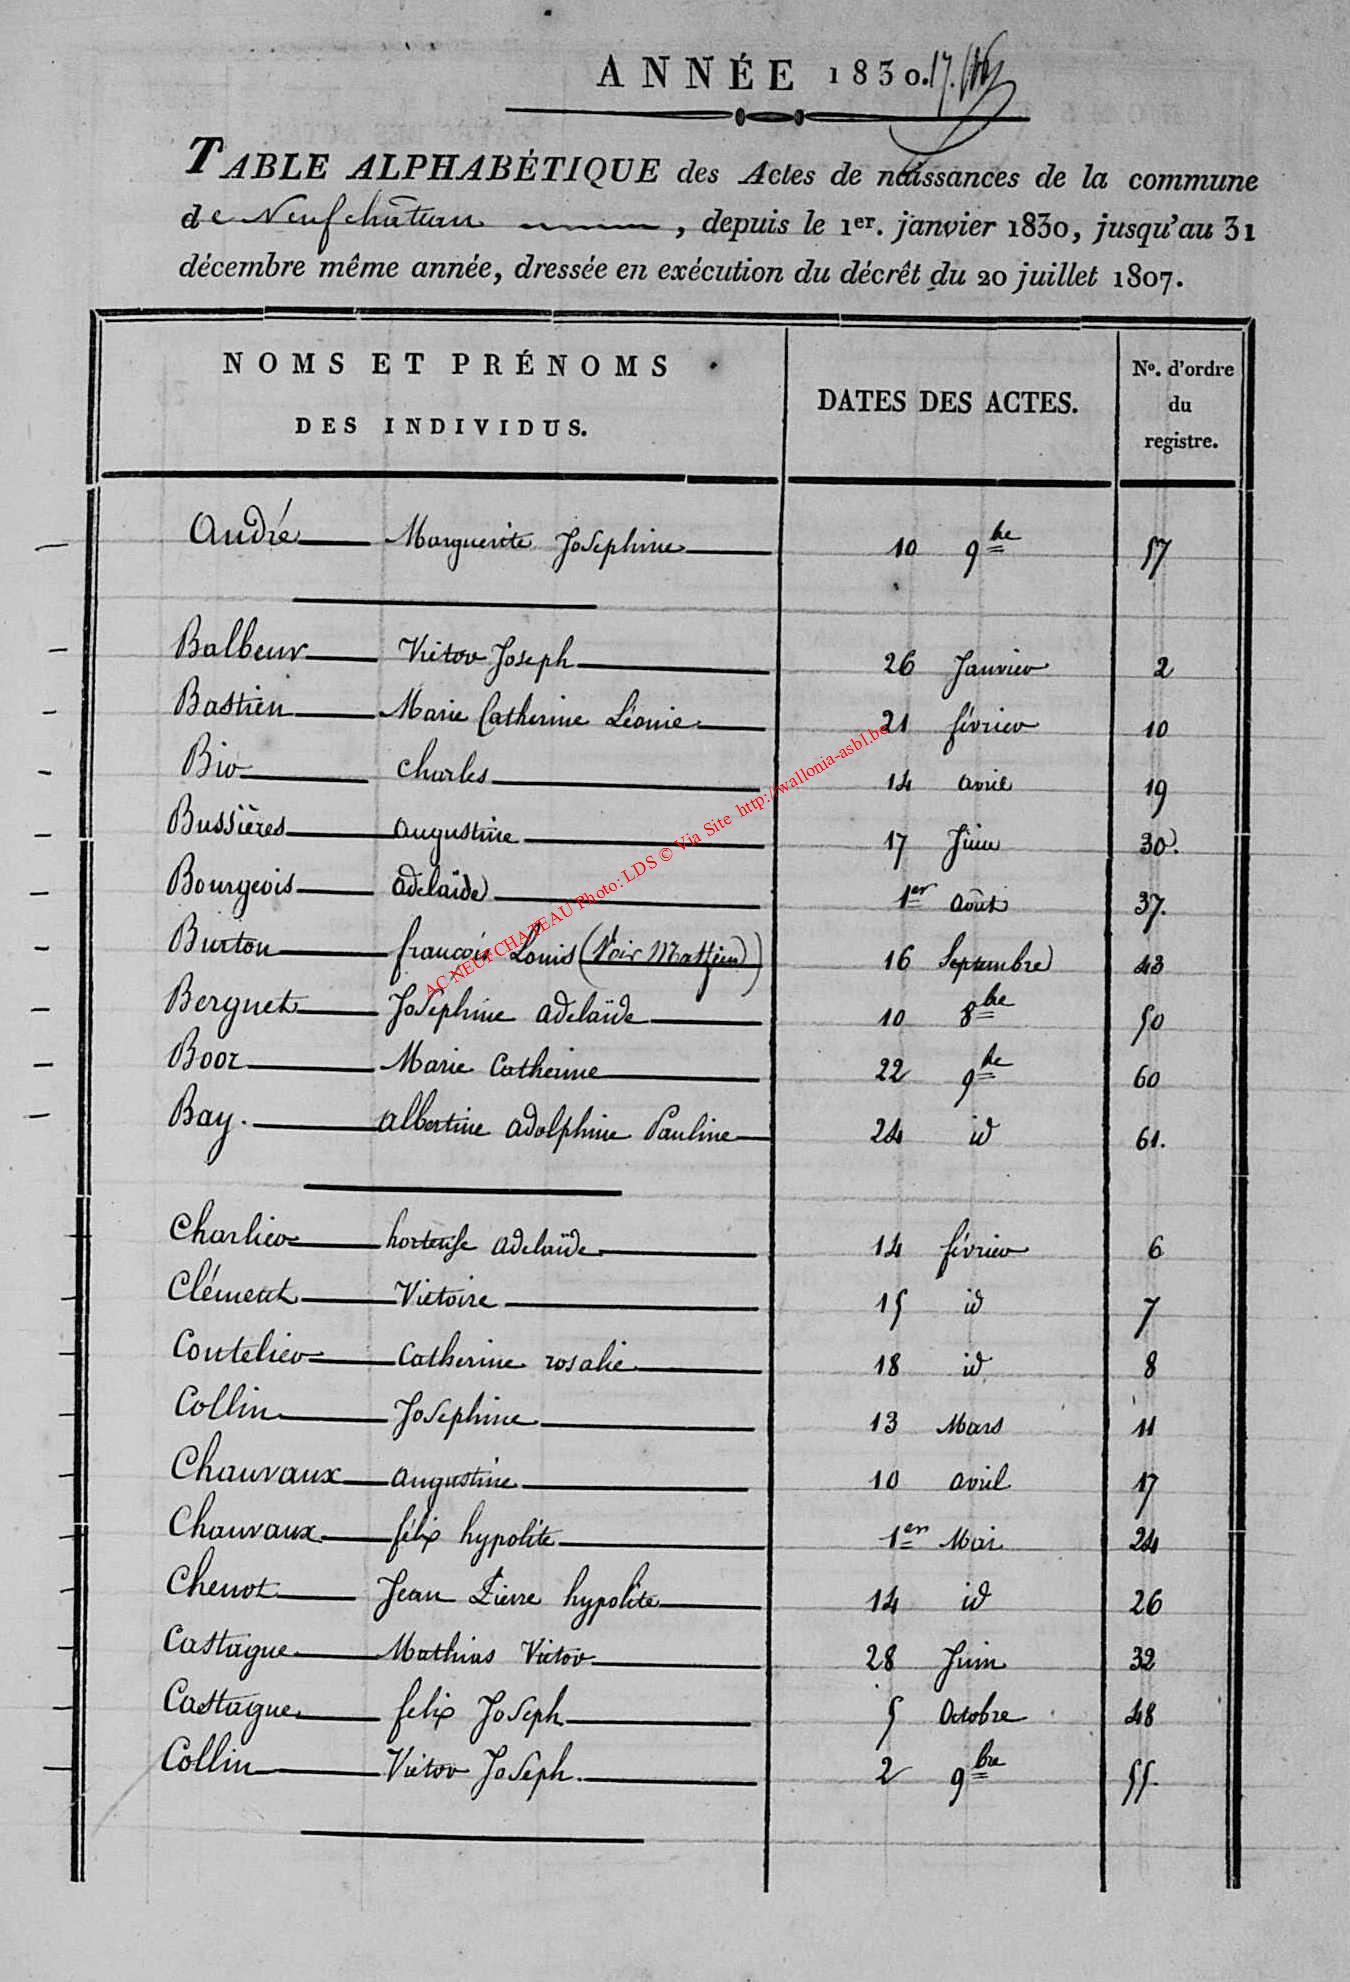 ANNÉE 1830.
TABLE ALPHABÉTIQUE des Actes de naissances de la commune
de Neufchâteau, depuis le 1er. janvier 1830, jusqu'au 31
décembre même année, dressée en exécution du décrêt du 20 juillet 1807.
NOMS ET PRÉNOMS DES INDIVIDUS. DATES DES ACTES. No. d'ordre du registre.
André Marguerite Josephine 10 9bre 57
Balbeur Victor Joseph 26 Janvier 2
Bastien Marie Catherine Léonie 21 février 10
Bio charles 14 avril 19
Bussières augustine 17 Juin 30.
Bourgeois adelaïde 1er août 37.
Burton francois Louis (Voir Mathieu) 16 Septembre 43
Berguet Josephine adelaïde 10 8bre 50
Booz Marie Catherine 22 9bre 60
Bay. albertine adolphine Pauline 24 id 61.
Charlier hortense adelaïde 14 février 6
Clément Victoire 15 id 7
Coutelier Catherine rosalie 18 id 8
Collin Josephine 13 Mars 11
Chauvaux augustine 10 avril 17
Chauvaux félix hypolite 1er Mai 24
Chenot Jean Pierre hypolite 14 id 26
Castagne Mathias Victor 28 Juin 32
Castagne felix Joseph 5 Octobre 48
Collin Victor Joseph. 2 9bre 55.
AC NEUFCHATEAU Photo: LDS © Via Site http://wallonia-asbl.be